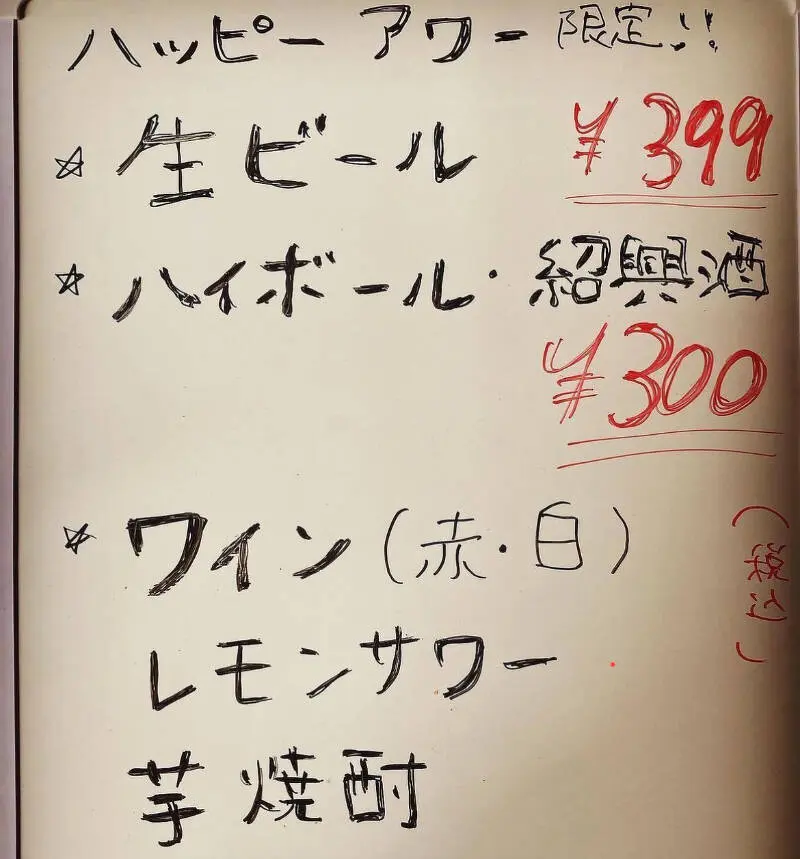 ハッピーアワー 限定!!
☆ 生ビール ¥399
☆ ハイボール・紹興酒
¥300
☆ ワイン (赤・白)
レモンサワー
芋焼酎